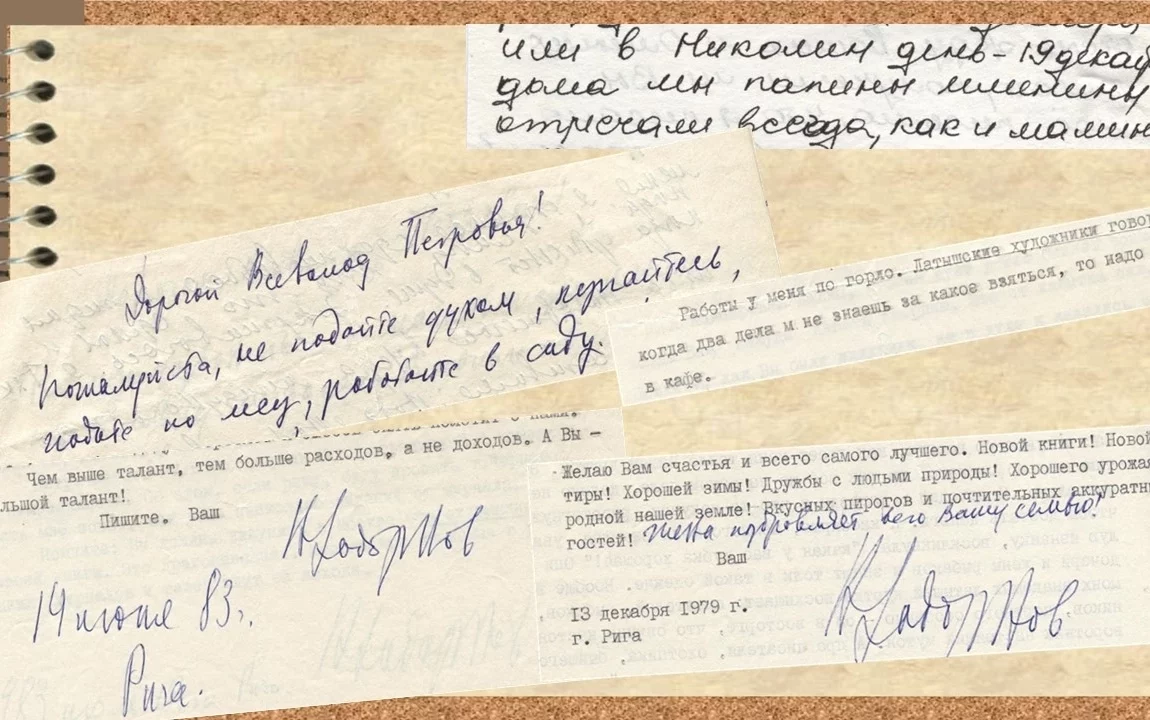 или в Николин день - 19 декаб
дома мы папины именины
отмечали всегда, как и мамин
Дорогой Всеволод Петрович!
Пожалуйста, не падайте духом, купайтесь,
ходите по лесу, работайте в саду.
Работы у меня по горло. Латышские художники говор
когда два дела м не знаешь за какое взяться, то надо
в кафе.
Чем выше талант, тем больше расходов, а не доходов. А Вы –
льшой талант!
Пишите. Ваш
НЗадорнов
19 июня 83 г.
Рига.
Желаю Вам счастья и всего самого лучшего. Новой книги! Новой
тиры! Хорошей зимы! Дружбы с людьми природы! Хорошего урожая
родной нашей земле! Вкусных пирогов и почтительных аккуратны
гостей! Жена поздравляет всю Вашу семью!
Ваш
НЗадорнов
13 декабря 1979 г.
г. Рига